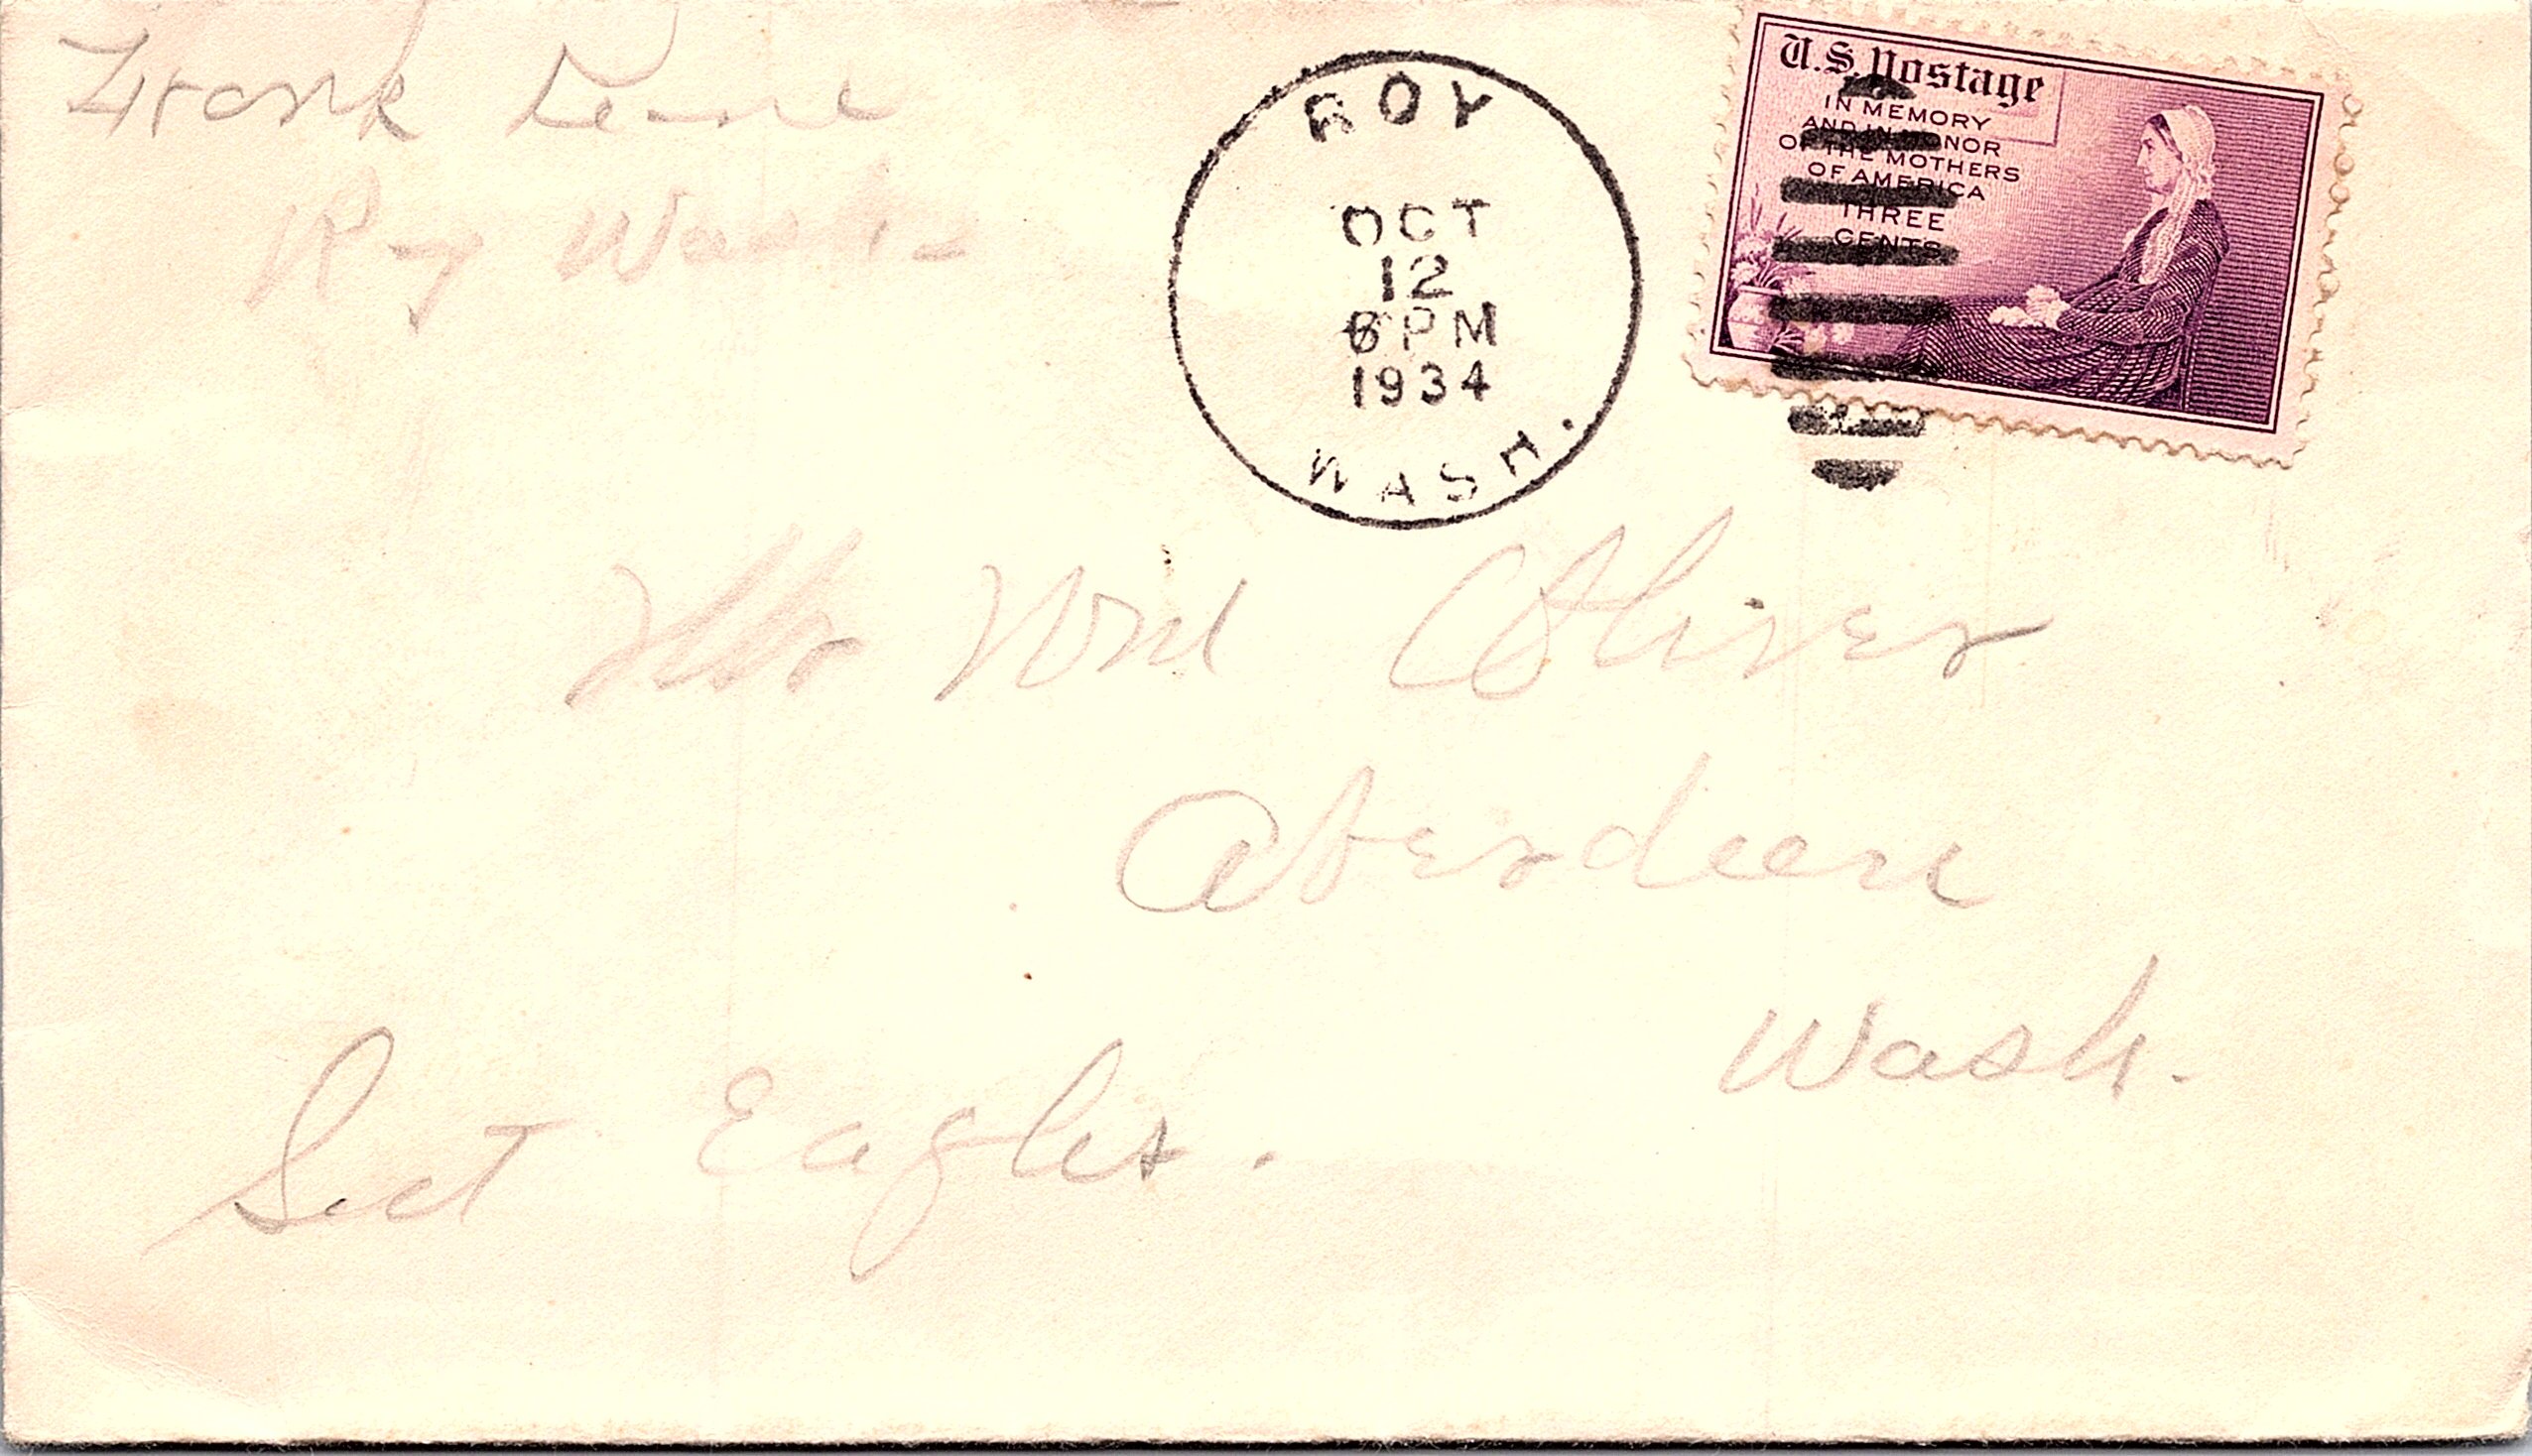 Frank
Roy Wash-
ROY
OCT
12
6 PM
1934
WASH.
U.S. Postage
IN MEMORY
AND IN HONOR
OF THE MOTHERS
OF AMERICA
THREE
CENTS
Mr Wm Oliver
Aberdeen
Wash.
Sect Eagles.